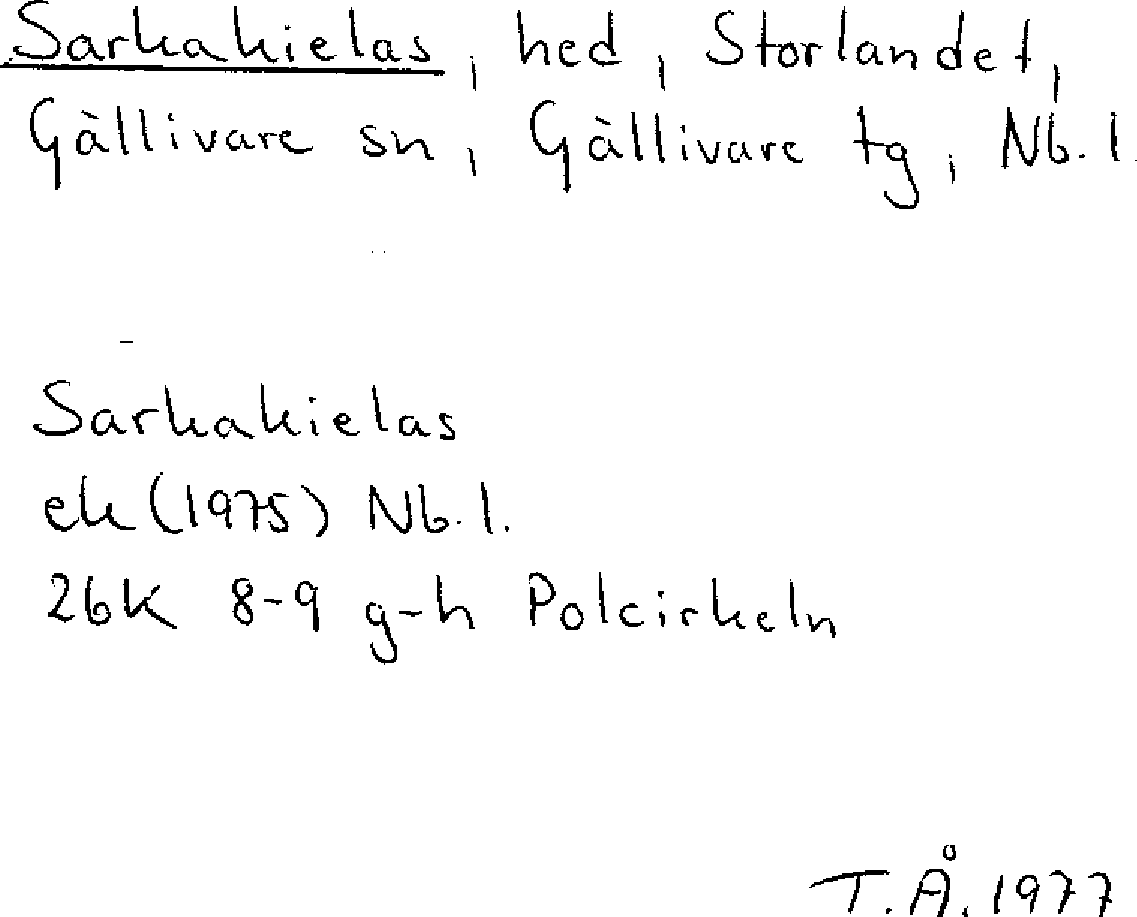 Sarkakielas, hed, Storlandet,
Gällivare sn, Gällivare tg, Nb. l.
Sarkakielas
ek (1975) Nb. l.
26K 8-9 g-h Polcirkeln
T. Å. 1977